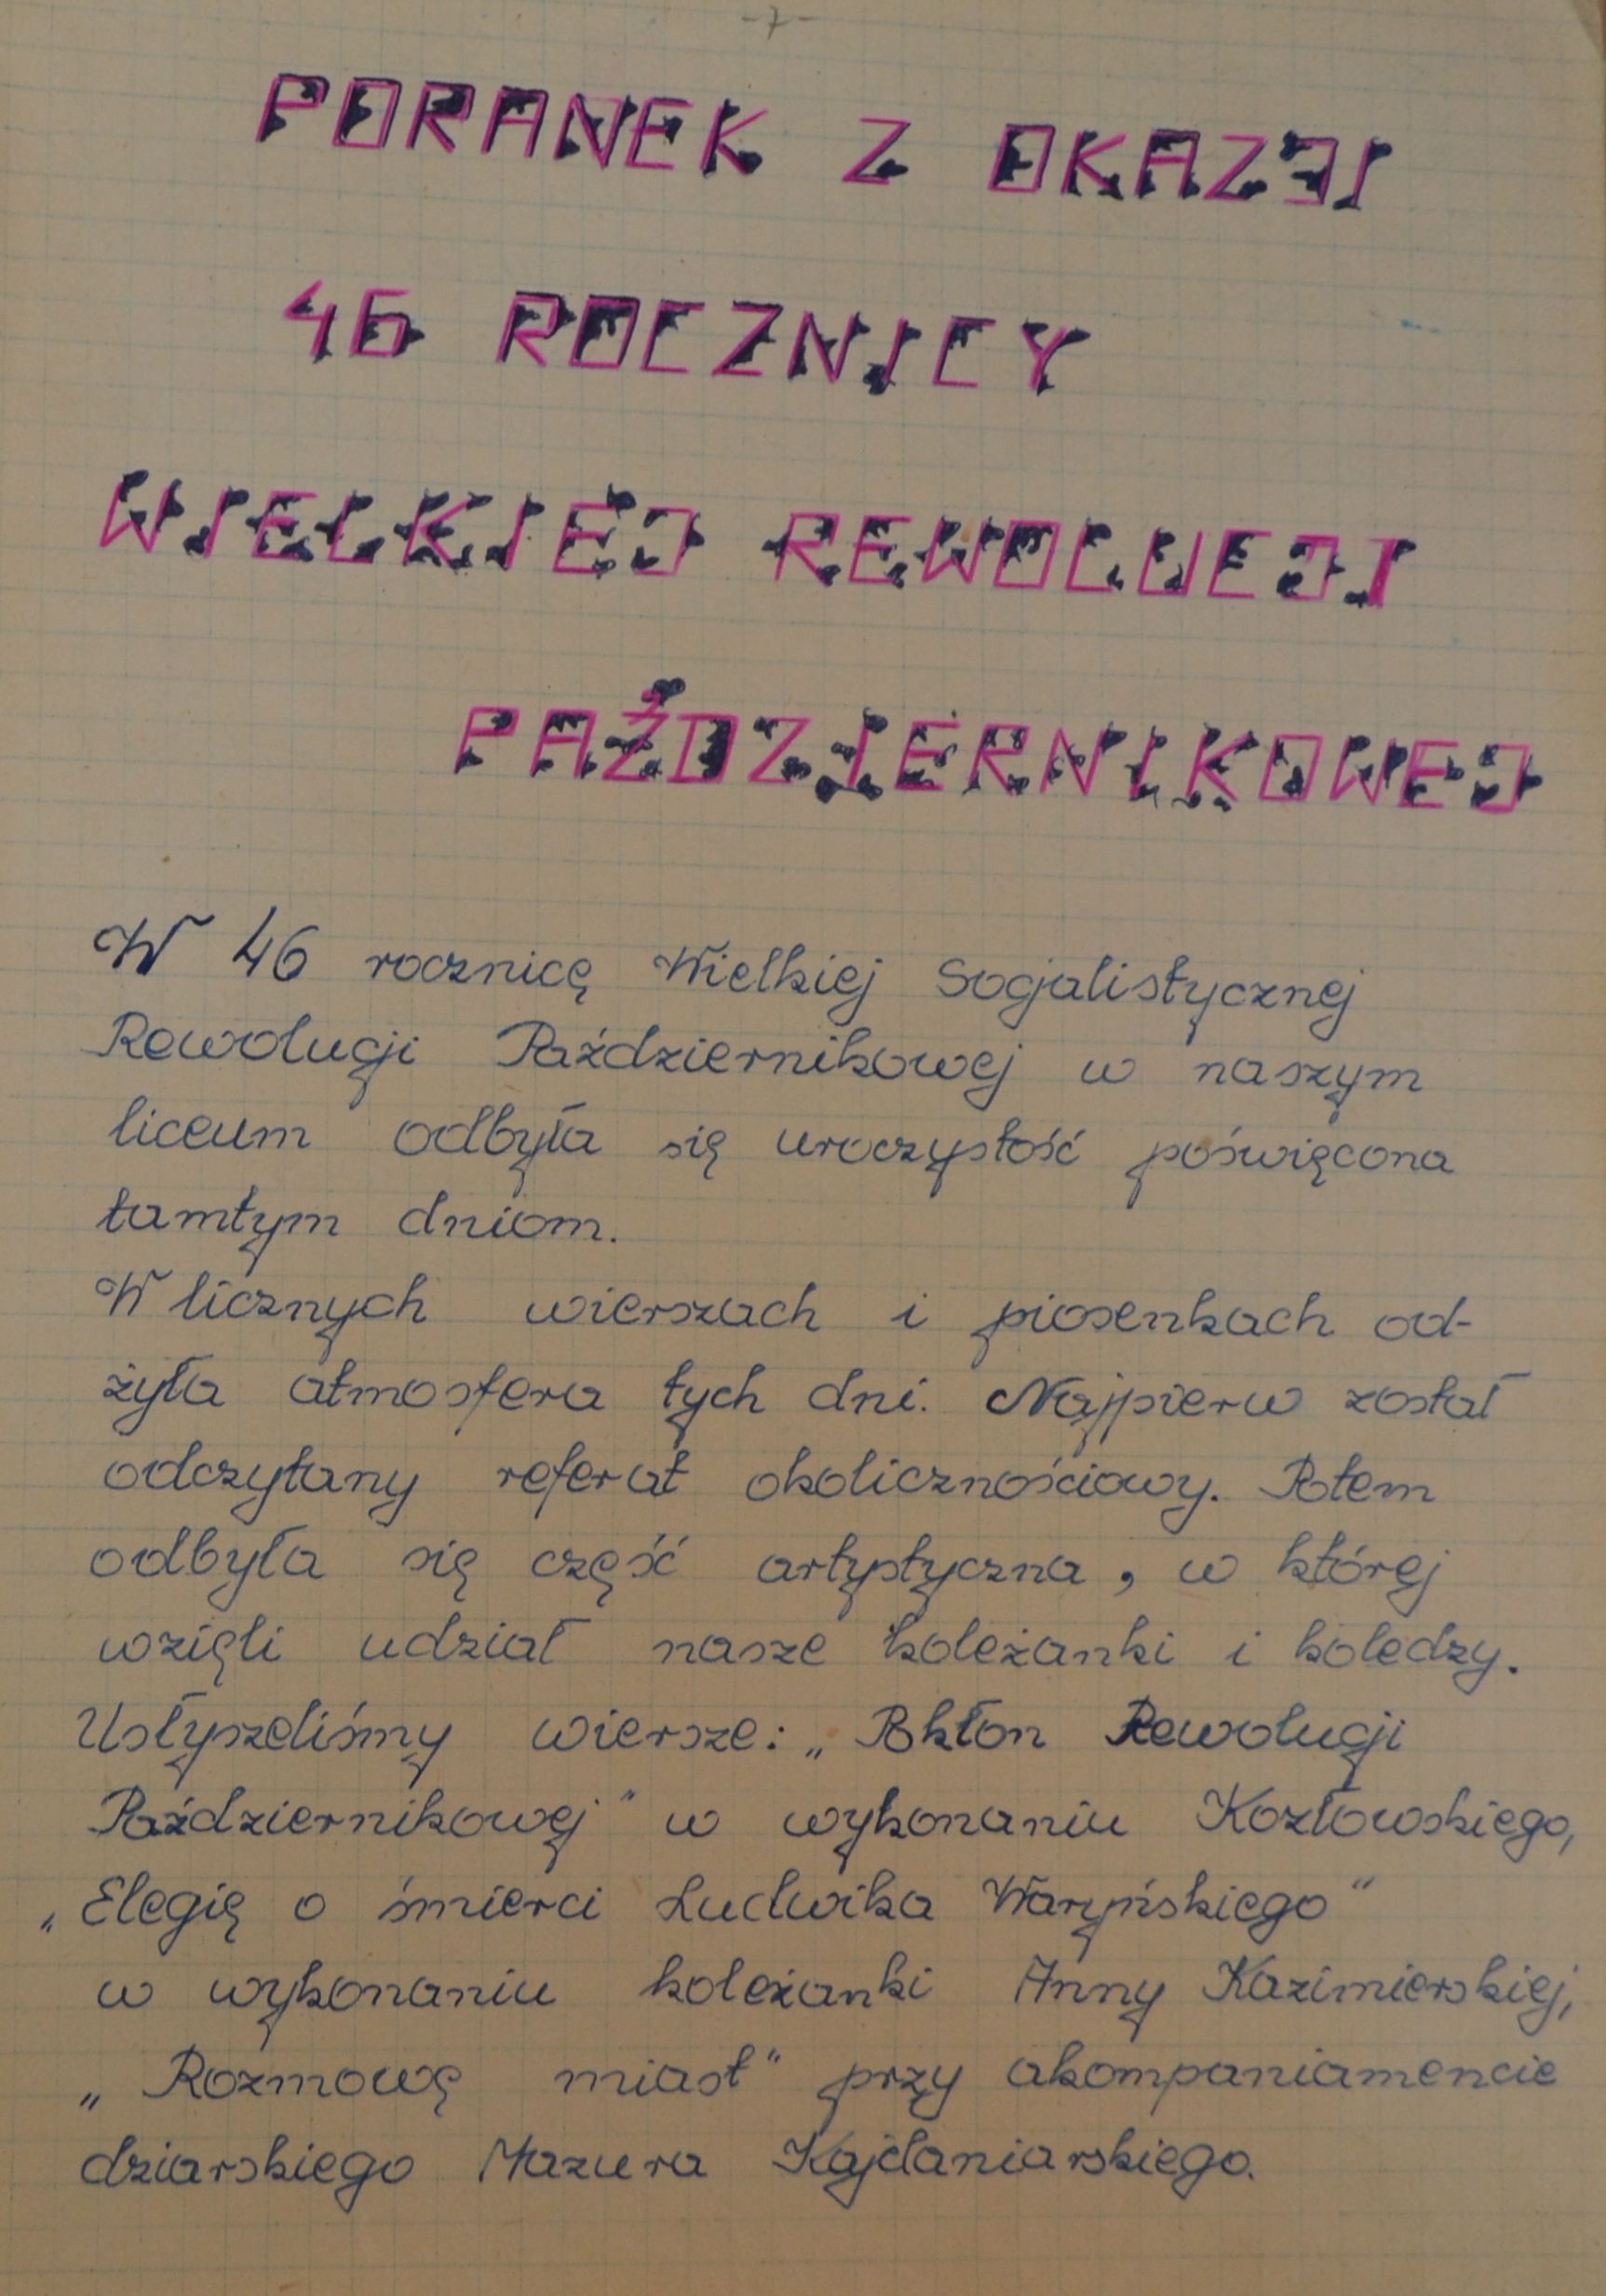 -7-
PORANEK Z OKAZJI
46 ROCZNICY
WIELKIEJ REWOLUCJI
PAŹDZIERNIKOWEJ
W 46 rocznicę Wielkiej Socjalistycznej
Rewolucji Październikowej w naszym
liceum odbyła się uroczystość poświęcona
tamtym dniom.
W licznych wierszach i piosenkach od-
żyła atmosfera tych dni. Najpierw został
odczytany referat okolicznościowy. Potem
odbyła się część artystyczna, w której
wzięli udział nasze koleżanki i koledzy.
Usłyszeliśmy wiersze: „Pokłon Rewolucji
Październikowej" w wykonaniu Kozłowskiego,
„Elegię o śmierci Ludwika Waryńskiego"
w wykonaniu koleżanki Anny Kazimierskiej,
„Rozmowę miast" przy akompaniamencie
dziarskiego Mazura Kajdaniarskiego.